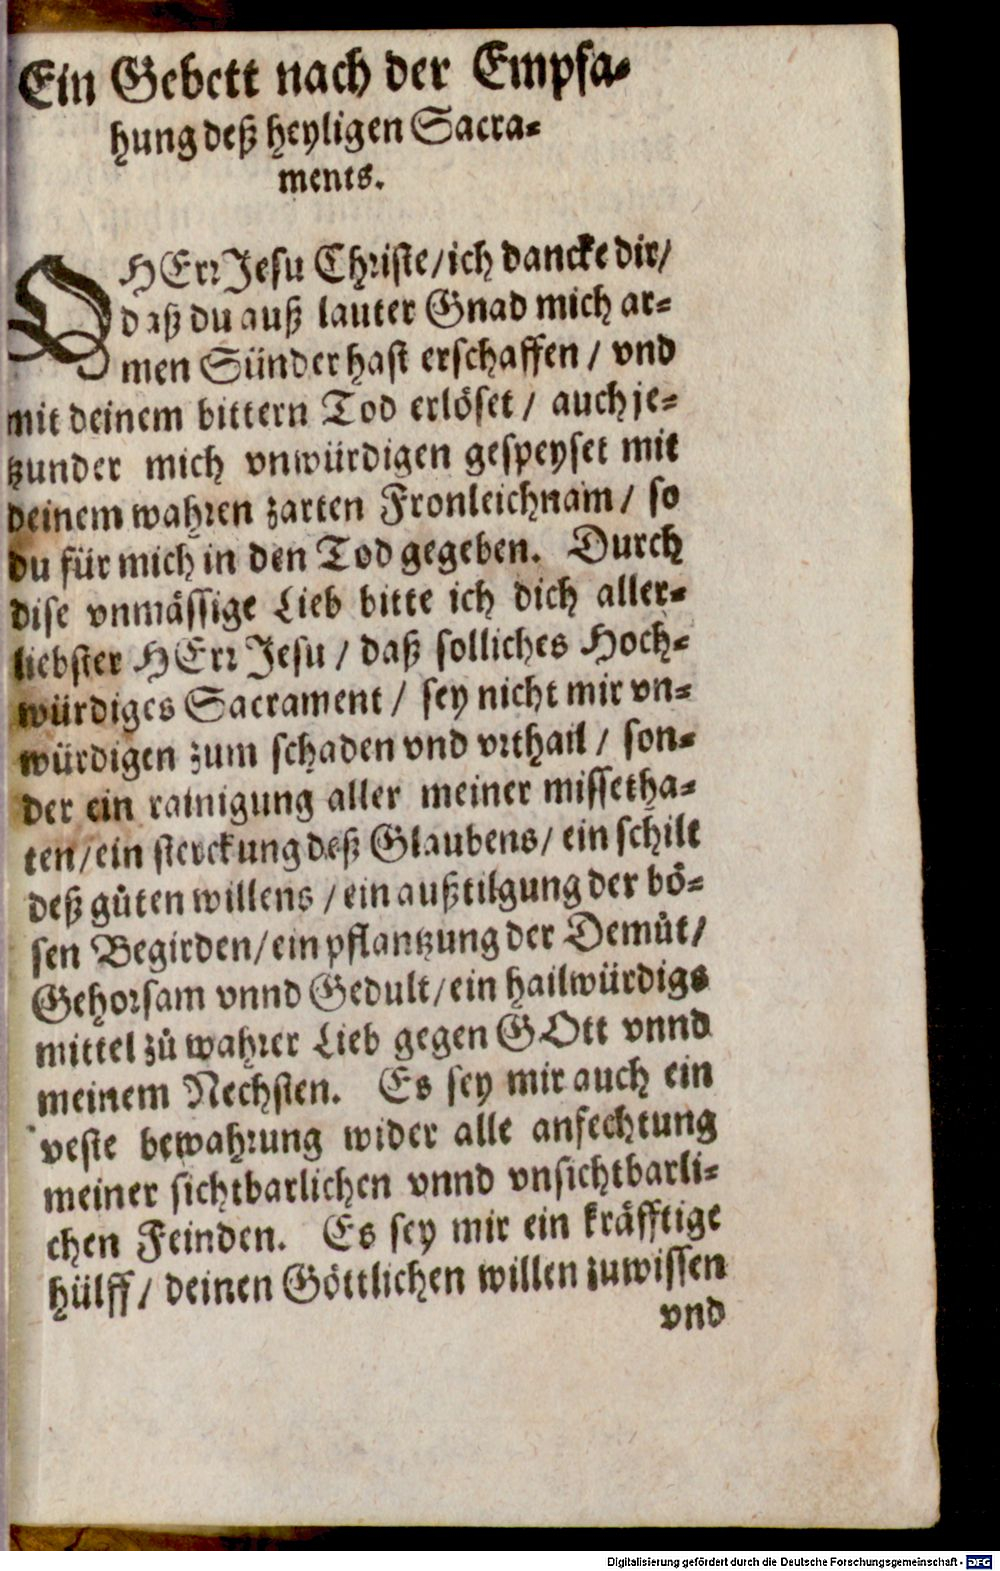 Ein Gebett nach der Empfa-
hung deß heyligen Sacra-
ments.
O HErr Jesu Christe/ ich dancke dir/
daß du auß lauter Gnad mich ar-
men Sünder hast erschaffen / vnd
mit deinem bittern Tod erlöset / auch je-
tzunder mich vnwürdigen gespeyset mit
deinem wahren zarten Fronleichnam / so
du für mich in den Tod gegeben. Durch
dise vnmässige Lieb bitte ich dich aller-
liebster HErr Jesu / daß solliches Hoch-
würdiges Sacrament / sey nicht mir vn-
würdigen zum schaden vnd vrthail / son-
der ein rainigung aller meiner missetha-
ten/ ein sterckung deß Glaubens/ ein schilt
deß gůten willens / ein außtilgung der bö-
sen Begirden/ ein pflantzung der Demůt/
Gehorsam vnnd Gedult/ ein hailwürdigs
mittel zů wahrer Lieb gegen GOtt vnnd
meinem Nechsten. Es sey mir auch ein
veste bewahrung wider alle anfechtung
meiner sichtbarlichen vnnd vnsichtbarli-
chen Feinden. Es sey mir ein kräfftige
hülff / deinen Göttlichen willen zuwissen
vnd
Digitalisierung gefördert durch die Deutsche Forschungsgemeinschaft - DFG